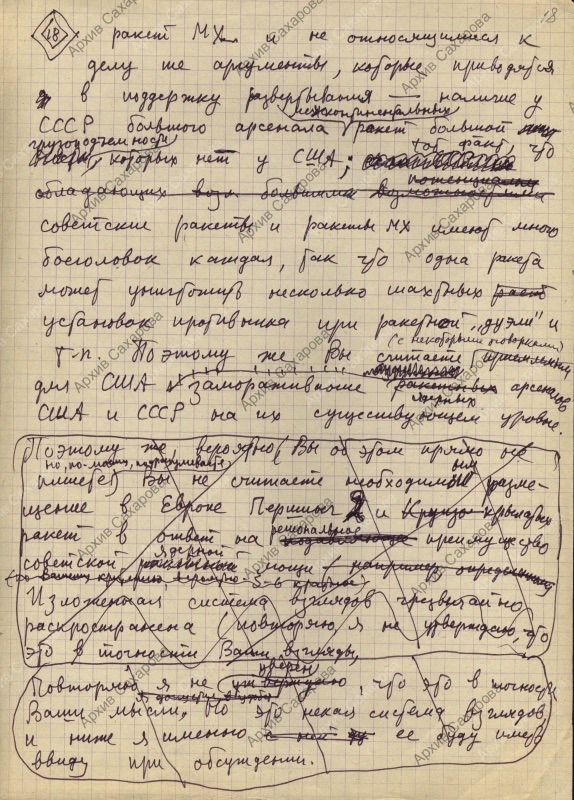 18
ракет МХ и не относящимися к
делу те аргументы, которые приводятся
в поддержку развертывания – наличие у
межконтинентальных
СССР большого арсенала ракет большой
грузоподъемности
, которых нет у США; тот факт, что
потенциально
обладающих большими возможностями
советские ракеты и ракеты МХ имеют много
боеголовок каждая, так что одна ракета
может уничтожить несколько шахтных
установок противника при ракетной „дуэли" и
(с некоторыми оговорками)
т-п. Поэтому же Вы считаете приемлемым
для США замораживание ракетных арсеналов
ядерных
США и СССР на их существующем уровне.
Поэтому же, вероятно (Вы об этом прямо не
но, по-моему, подразумевается
пишете) Вы не считаете необходимым разме-
щение в Европе Першинг 2 и Крузо крылатых
региональное
ракет в ответ на преимущество
ядерной
советской мощи (например определенный
(по Вашим критериям, вероятно – 5-6 кратное)
Изложенная система взглядов чрезвычайно
распространена (повторяю, я не утверждаю, что
это в точности Ваши взгляды,
уверен
Повторяю я не утверждаю, что это в точности
Ваши мысли. Но это некая система взглядов,
и ниже я именно с ней ее буду иметь
ввиду при обсуждении.
Архив Сахарова